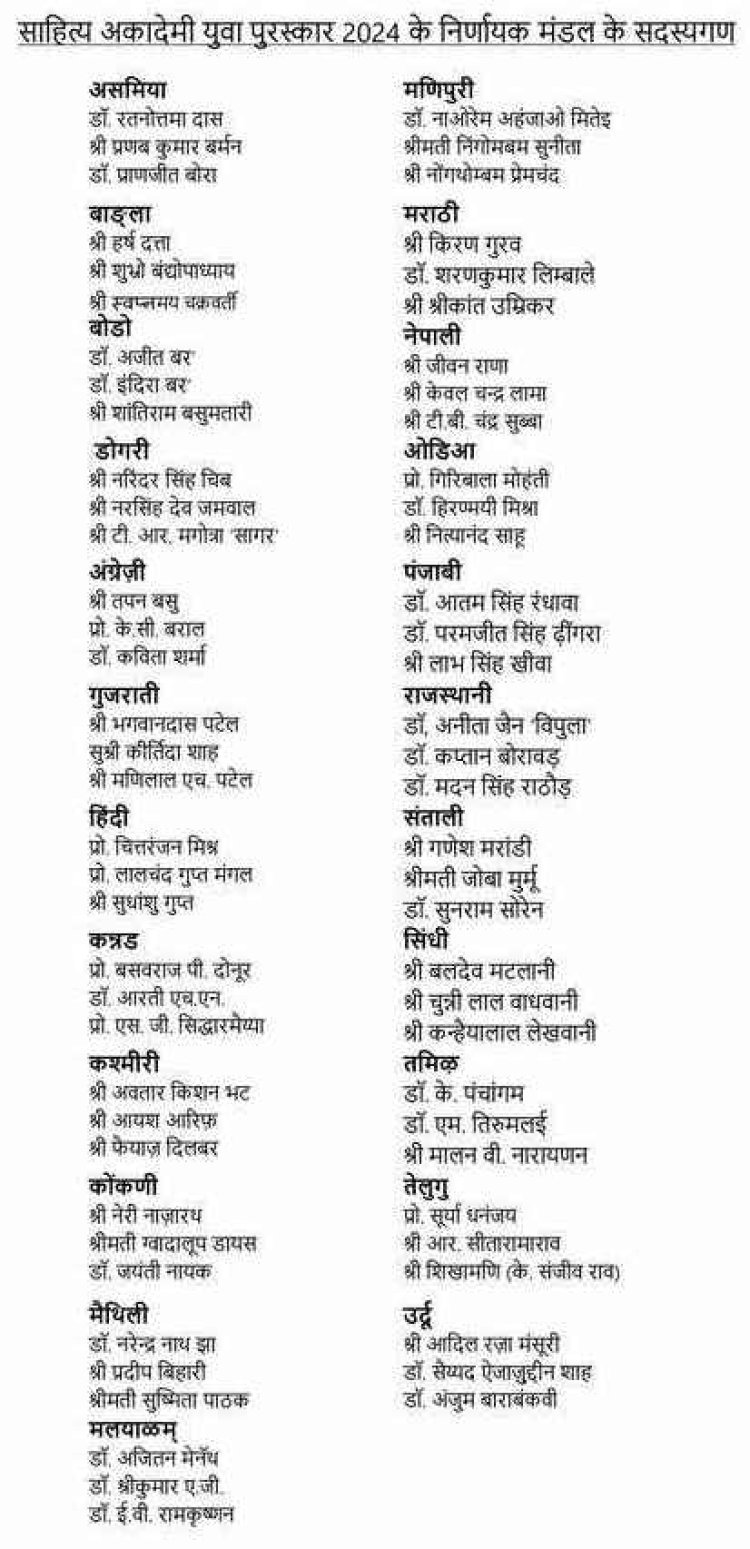 साहित्य अकादेमी युवा पुरस्कार 2024 के निर्णायक मंडल के सदस्यगण
असमिया
डॉ. रतनोत्तमा दास
श्री प्रणब कुमार बर्मन
डॉ. प्राणजीत बोरा
बाङ्ला
श्री हर्ष दत्ता
श्री शुभ्रो बंद्योपाध्याय
श्री स्वप्नमय चक्रवर्ती
बोडो
डॉ. अजीत बर'
डॉ. इंदिरा बर'
श्री शांतिराम बसुमतारी
डोगरी
श्री नरिंदर सिंह चिब
श्री नरसिंह देव जमवाल
श्री टी. आर. मगोत्रा 'सागर'
अंग्रेज़ी
श्री तपन बसु
प्रो. के.सी. बराल
डॉ. कविता शर्मा
गुजराती
श्री भगवानदास पटेल
सुश्री कीर्तिदा शाह
श्री मणिलाल एच. पटेल
हिंदी
प्रो. चित्तरंजन मिश्र
प्रो. लालचंद गुप्त मंगल
श्री सुधांशु गुप्त
कन्नड
प्रो. बसवराज पी. दोनूर
डॉ. आरती एच.एन.
प्रो. एस. जी. सिद्धारमैय्या
कश्मीरी
श्री अवतार किशन भट
श्री आयश आरिफ़
श्री फैयाज़ दिलबर
कोंकणी
श्री नेरी नाज़ारथ
श्रीमती ग्वादालूप डायस
डॉ. जयंती नायक
मैथिली
डॉ. नरेन्द्र नाथ झा
श्री प्रदीप बिहारी
श्रीमती सुष्मिता पाठक
मलयाळम्
डॉ. अजितन मेनॅथ
डॉ. श्रीकुमार ए.जी.
डॉ. ई.वी. रामकृष्णन
मणिपुरी
डॉ. नाओरेम अहंजाओ मितेइ
श्रीमती निंगोमबम सुनीता
श्री नोंगथोम्बम प्रेमचंद
मराठी
श्री किरण गुरव
डॉ. शरणकुमार लिम्बाले
श्री श्रीकांत उम्रिकर
नेपाली
श्री जीवन राणा
श्री केवल चन्द्र लामा
श्री टी.बी. चंद्र सुब्बा
ओडिआ
प्रो. गिरिबाला मोहंती
डॉ. हिरण्मयी मिश्रा
श्री नित्यानंद साहू
पंजाबी
डॉ. आतम सिंह रंधावा
डॉ. परमजीत सिंह ढ़ींगरा
श्री लाभ सिंह खीवा
राजस्थानी
डॉ. अनीता जैन 'विपुला'
डॉ. कप्तान बोरावड़
डॉ. मदन सिंह राठौड़
संताली
श्री गणेश मरांडी
श्रीमती जोबा मुर्मू
डॉ. सुनराम सोरेन
सिंधी
श्री बलदेव मटलानी
श्री चुन्नी लाल वाधवानी
श्री कन्हैयालाल लेखवानी
तमिऴ
डॉ. के. पंचांगम
डॉ. एम. तिरुमलई
श्री मालन वी. नारायणन
तेलुगु
प्रो. सूर्या धनंजय
श्री आर. सीतारामाराव
श्री शिखामणि (के. संजीव राव)
उर्दू
श्री आदिल रज़ा मंसूरी
डॉ. सैय्यद ऐजाज़ुद्दीन शाह
डॉ. अंजुम बाराबंकवी